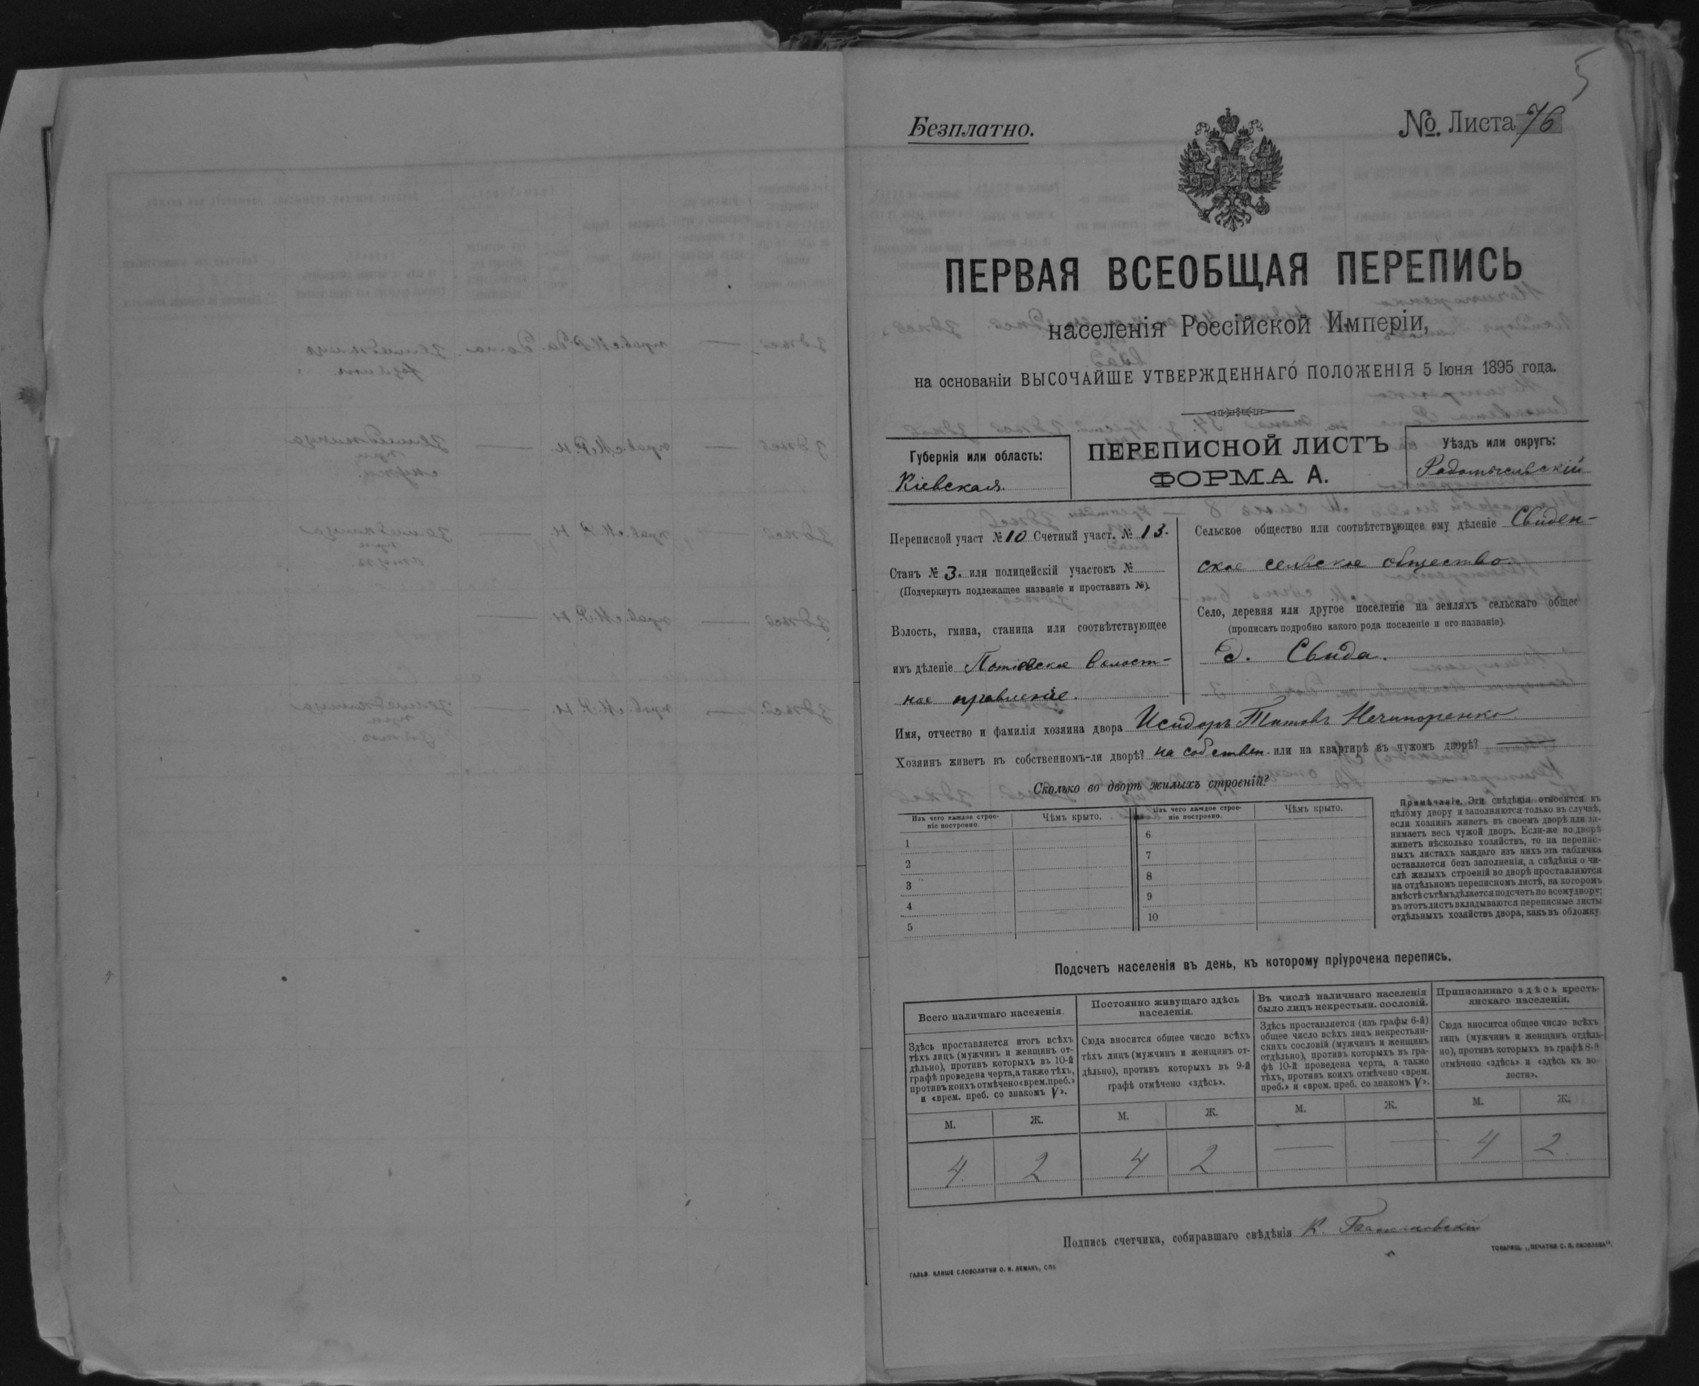 5
Безплатно.
№. Листа 76
ПЕРВАЯ ВСЕОБЩАЯ ПЕРЕПИСЬ
населенія Россійской Имперіи,
на основаніи ВЫСОЧАЙШЕ УТВЕРЖДЕННАГО ПОЛОЖЕНІЯ 5 Іюня 1895 года.
Губернія или область:
Кіевская.
ПЕРЕПИСНОЙ ЛИСТЪ
ФОРМА А.
Уѣздъ или округъ:
Радомысльскій
Переписной участ № 10 Счетный участ. № 13.
Станъ № 3. или полицейскій участокъ №
(Подчеркнуть подлежащее названіе и проставить №).
Волость, гмина, станица или соотвѣтствующее
имъ дѣленіе Потіевское Волост-
ное правленіе.
Сельское общество или соотвѣтствующее ему дѣленіе Свиден-
ское сельское общество.
Село, деревня или другое поселеніе на земляхъ сельскаго общес
(прописать подробно какого рода поселеніе и его названіе).
д. Свида.
Имя, отчество и фамилія хозяина двора Исидоръ Титовъ Нечипоренко
Хозяинъ живетъ въ собственномъ-ли дворѣ? на собствен. или на квартирѣ въ чужомъ дворѣ?
Сколько во дворѣ жилыхъ строеній?
Изъ чего каждое строе-
ніе построено.
Чѣмъ крыто.
Изъ чего каждое строе-
ніе построено.
Чѣмъ крыто.
1
2
3
4
5
6
7
8
9
10
Примѣчаніе. Эти свѣдѣнія относятся къ
цѣлому двору и заполняются только въ случаѣ,
если хозяинъ живетъ въ своемъ дворѣ или за-
нимаетъ весь чужой дворъ. Если-же во дворѣ
живетъ нѣсколько хозяйствъ, то на перепис-
ныхъ листахъ каждаго изъ нихъ эта табличка
оставляется безъ заполненія, а свѣдѣнія о чи-
слѣ жилыхъ строеній во дворѣ проставляются
на отдѣльномъ переписномъ листѣ, на которомъ
вмѣстѣ съ тѣмъ дѣлается подсчетъ по всему двору;
въ этотъ листъ вкладываются переписные листы
отдѣльныхъ хозяйствъ двора, какъ въ обложку.
Подсчетъ населенія въ день, къ которому пріурочена перепись.
Всего наличнаго населенія.
Здѣсь проставляется итогъ всѣхъ
тѣхъ лицъ (мужчинъ и женщинъ от-
дѣльно), противъ которыхъ въ 10-й
графѣ проведена черта, а также тѣхъ,
противъ коихъ отмѣчено «врем. преб.»
и «врем. преб. со знакомъ V».
М.
Ж.
4
2
Постоянно живущаго здѣсь
населенія.
Сюда вносится общее число всѣхъ
тѣхъ лицъ (мужчинъ и женщинъ от-
дѣльно), противъ которыхъ въ 9-й
графѣ отмѣчено «здѣсь».
М.
Ж.
4
2
Въ числѣ наличнаго населенія
было лицъ некрестьян. сословій.
Здѣсь проставляется (изъ графы 6-й)
общее число всѣхъ лицъ некрестьян-
скихъ сословій (мужчинъ и женщинъ
отдѣльно), противъ которыхъ въ гра-
фѣ 10-й проведена черта, а также
тѣхъ, противъ коихъ отмѣчено «врем.
преб.» и «врем. преб. со знакомъ V».
М.
Ж.
— —
Приписаннаго здѣсь кресть-
янскаго населенія.
Сюда вносится общее число всѣхъ
лицъ (мужчинъ и женщинъ отдѣль-
но), противъ которыхъ въ графѣ 8-й
отмѣчено «здѣсь» и «здѣсь къ во-
лости».
М.
Ж.
4
2
Подпись счетчика, собиравшаго свѣдѣнія К.
ГАЛЬВ. КЛИШЕ СЛОВОЛИТНИ О. И. ЛЕМАНЪ, СПБ.